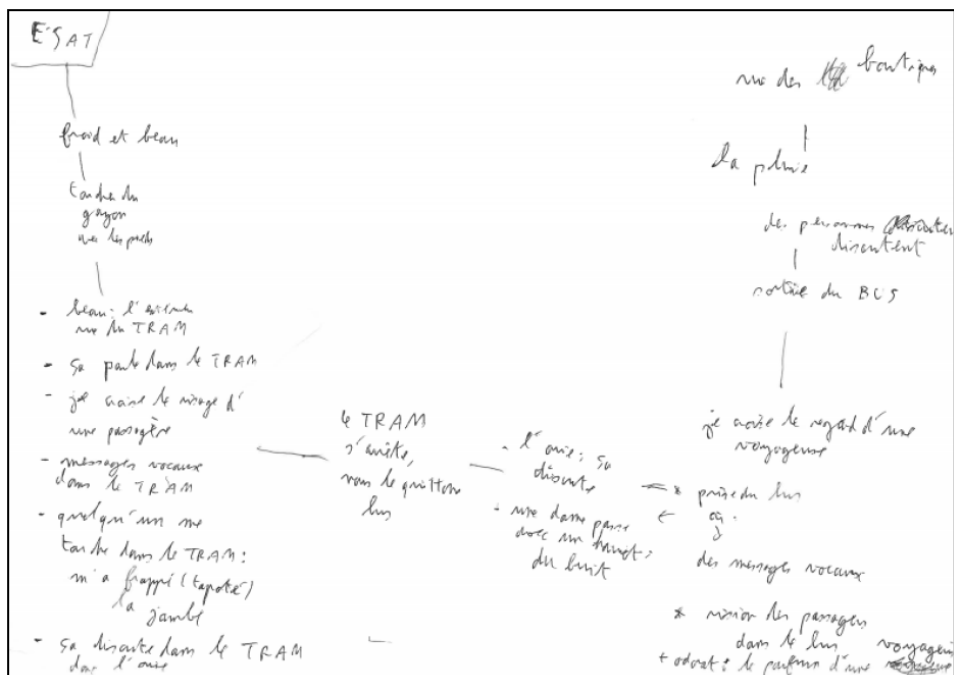 ESAT
froid et beau
toucher du
gazon
avec les pieds
- beau : l'extérieur
vu du TRAM
- sa parle dans le TRAM
- je croise le visage d'
une passagère
- messages vocaux
dans le TRAM
- quelqu'un me
touche dans le TRAM :
m'a frappé (tapoté)
la jambe
- sa discute dans le TRAM
donc l'ouie
le TRAM
s'arrête,
nous le quittons
- l'ouie : sa
discute
- une dame passe
avec un
du bruit
rue des boutiques
la pluie
des personnes
discutent
sortie du BUS
je croise le regard d'une
voyageuse
* prise du bus
des messages vocaux
* vision des passagers
dans le bus
+ odorat : le parfum d'une